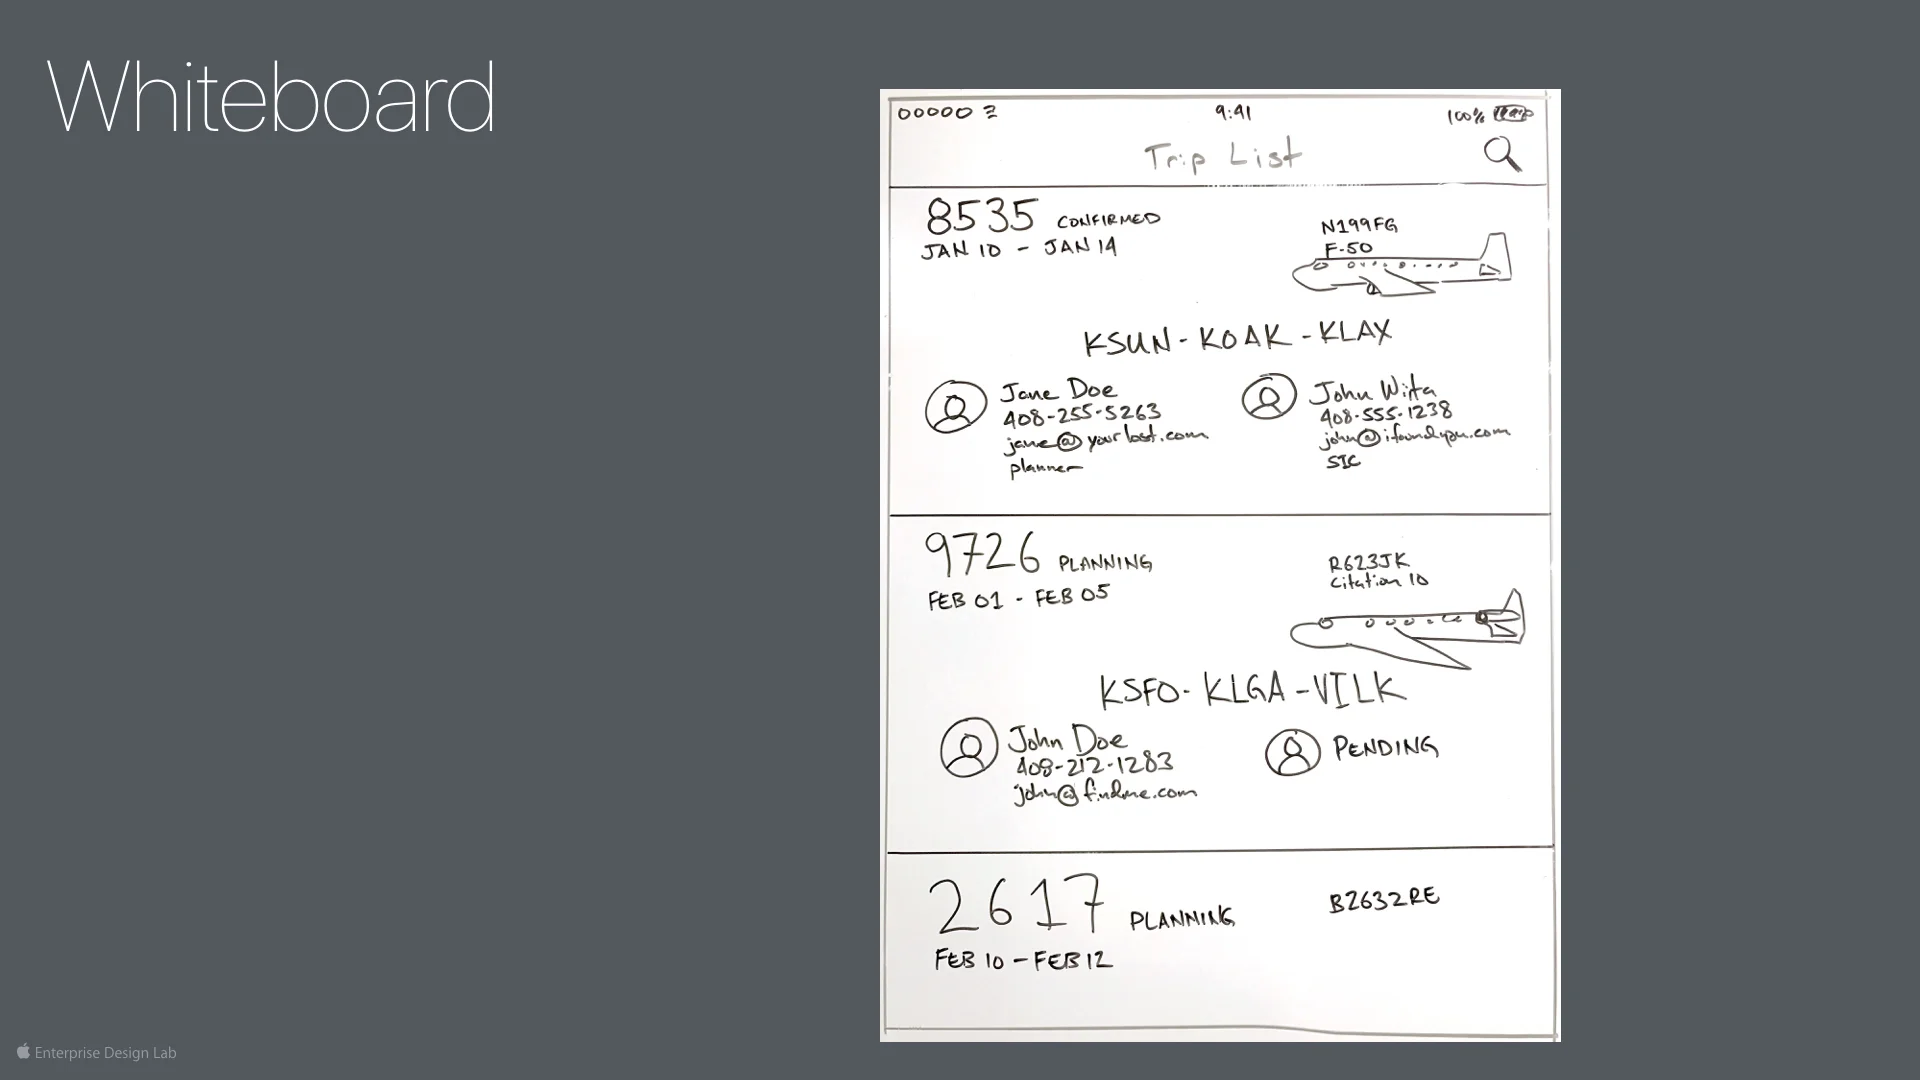 Whiteboard
9:41
100%
Trip List
8535 CONFIRMED
JAN 10 - JAN 14
N199FG
F-50
KSUN - KOAK - KLAX
Jane Doe
408-255-5263
jane@yourlost.com
planner
John Wita
408-555-1238
john@ifoundyou.com
SIC
9726 PLANNING
FEB 01 - FEB 05
R623JK
Citation 10
KSFO - KLGA - VILK
John Doe
408-212-1283
john@findme.com
PENDING
2617 PLANNING
FEB 10 - FEB 12
B2632RE
Enterprise Design Lab